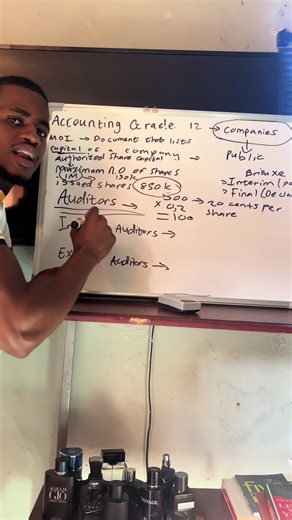 Accounting Grade 12 → companies
MOI → Document that lists
capital of a company
Authorized share capital
Public
maximum n.o of shares
(1M) → 150k
Issued shares 850k
> Interim
> Final
Auditors →
500 → 20 cents per
share
× 0,2
= 100
Auditors →
Auditors →
GIO